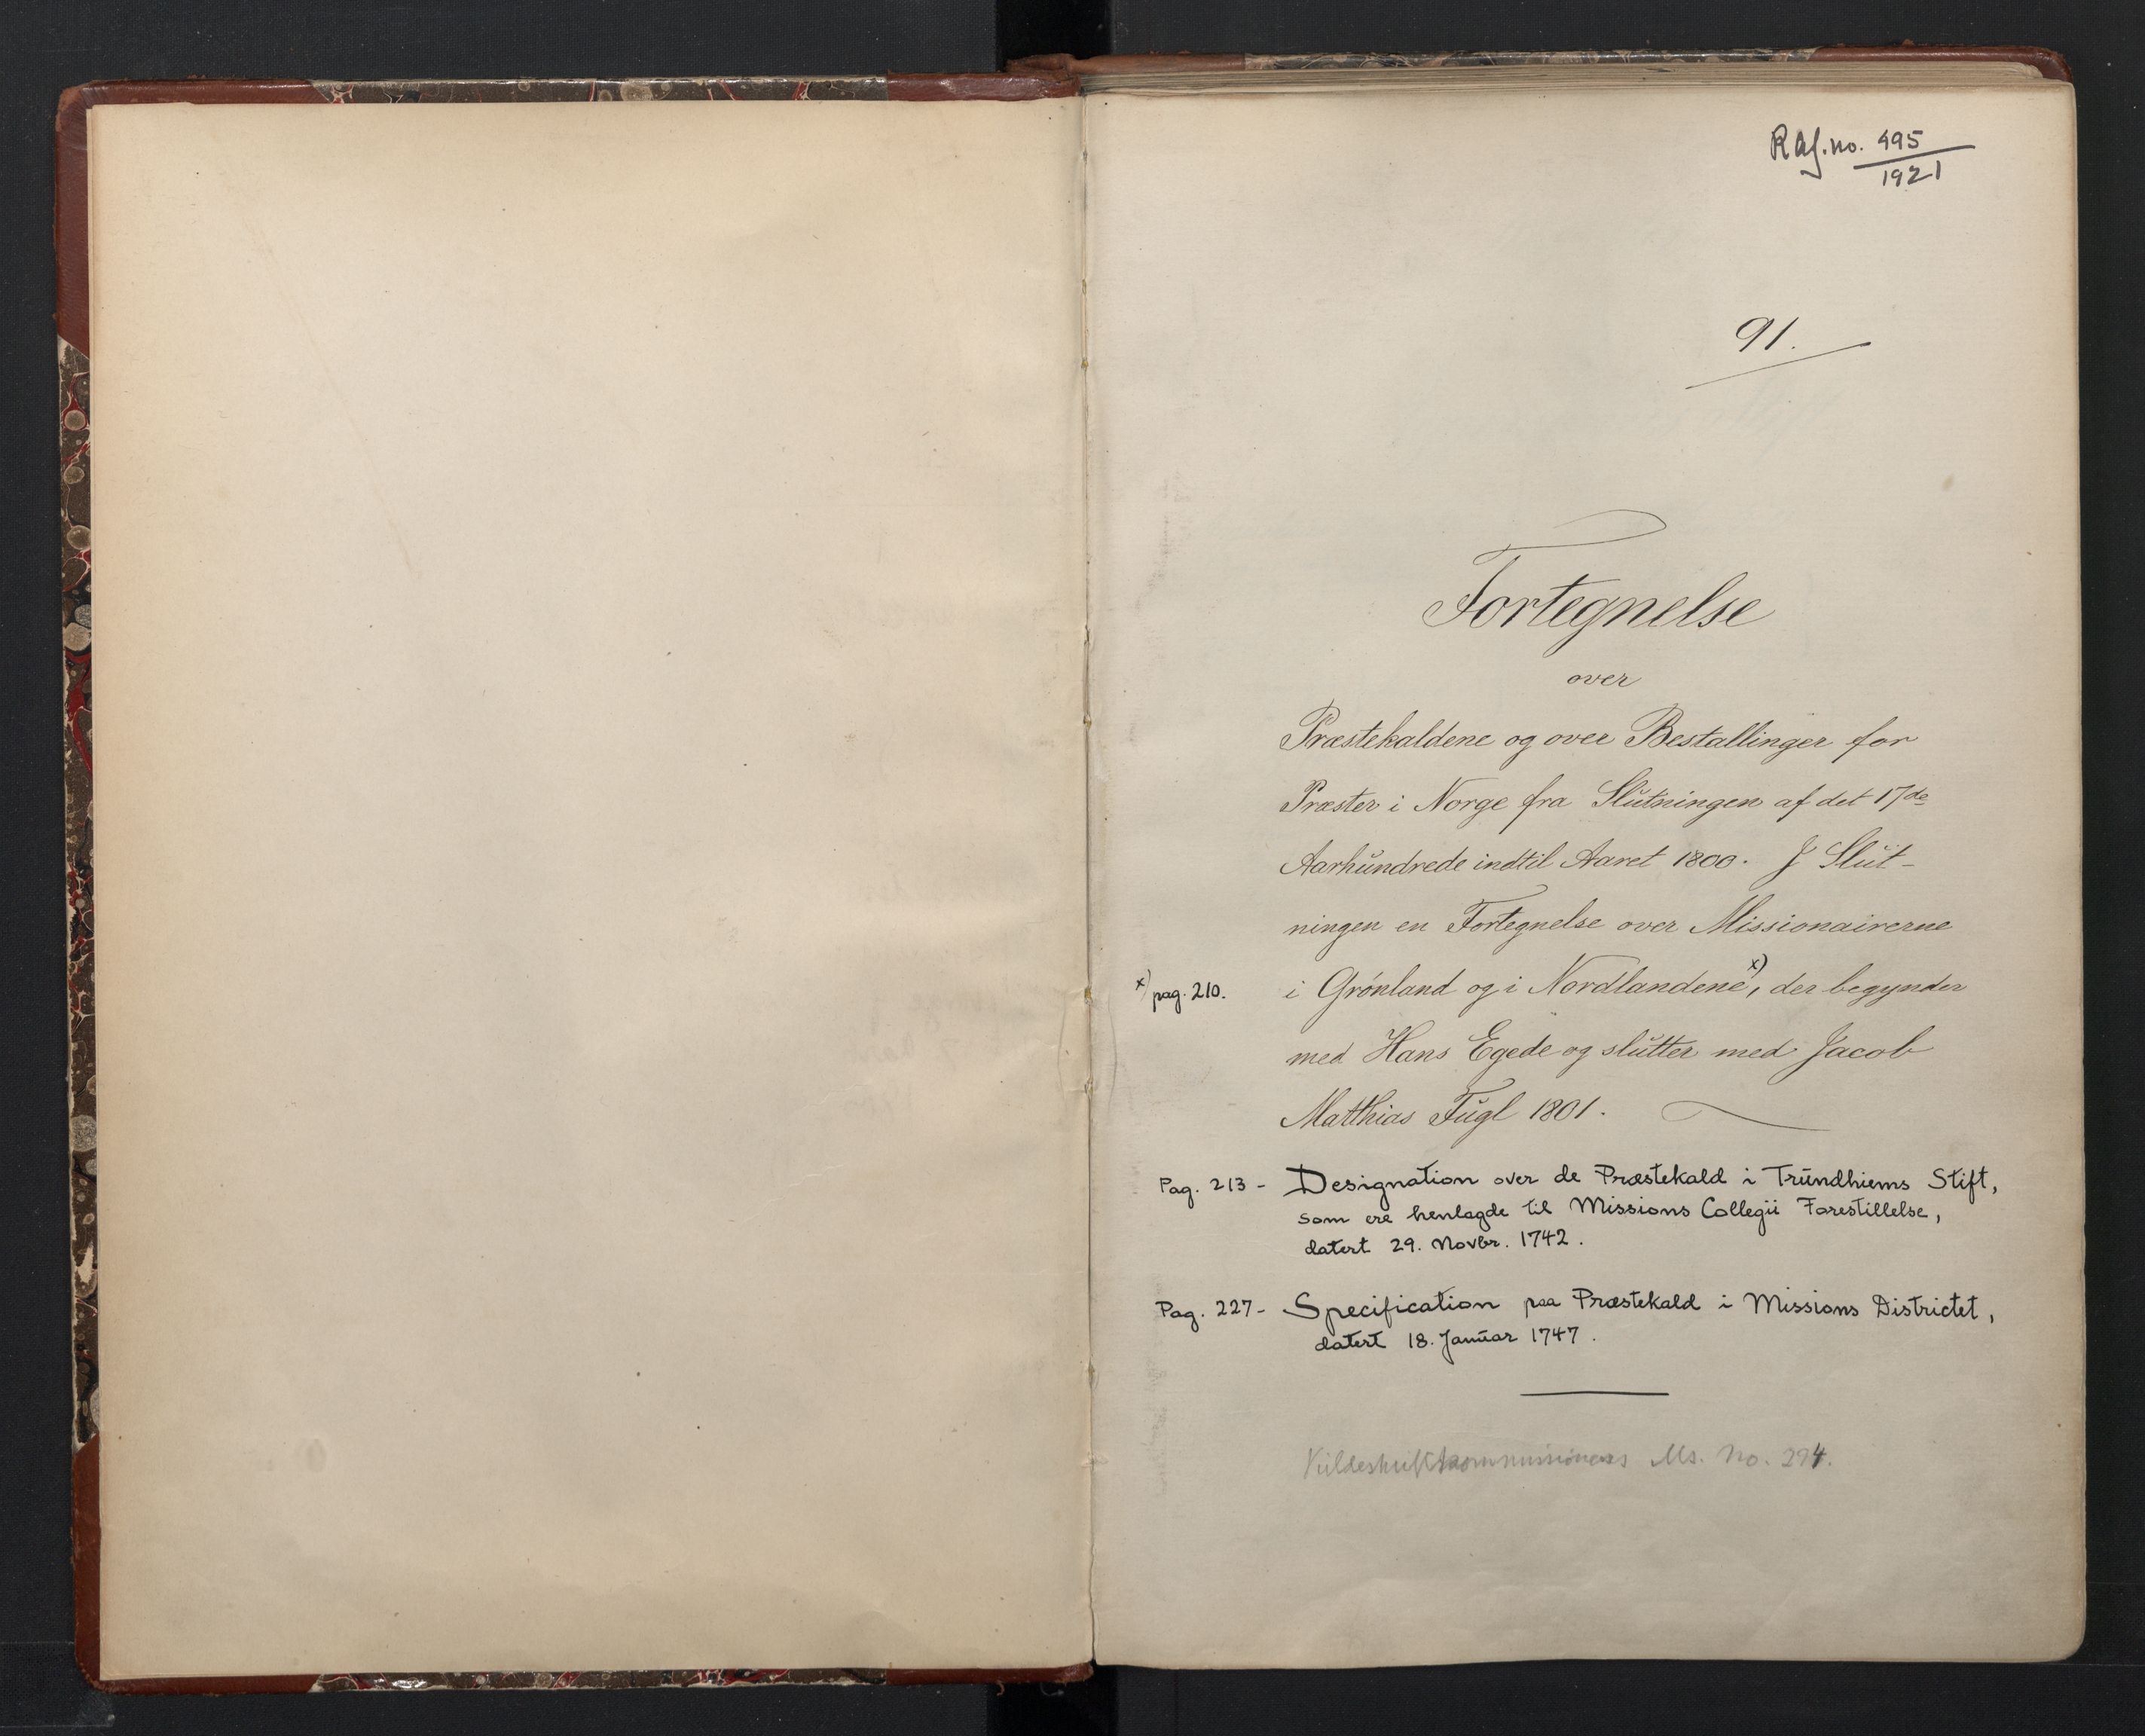 R Af. no. 495
1921
91.
Fortegnelse
over
Præstekaldene og over Bestallinger for
Præster i Norge fra Slutningen af det 17de
Aarhundrede indtil Aaret 1800. I Slut-
ningen en Fortegnelse over Missionairerne
x) pag. 210. i Grønland og i Nordlandene x), der begynder
med Hans Egede og slutter med Jacob
Matthias Fugl 1801.
Pag. 213 - Designation over de Præstekald i Trundhiems Stift,
som ere henlagde til Missions Collegii Forestillelse,
datert 29. Novbr. 1742.
Pag. 227 - Specification paa Præstekald i Missions Districtet,
datert 18. Januar 1747.
Kildeskriftkommissionens Ms. No. 294.